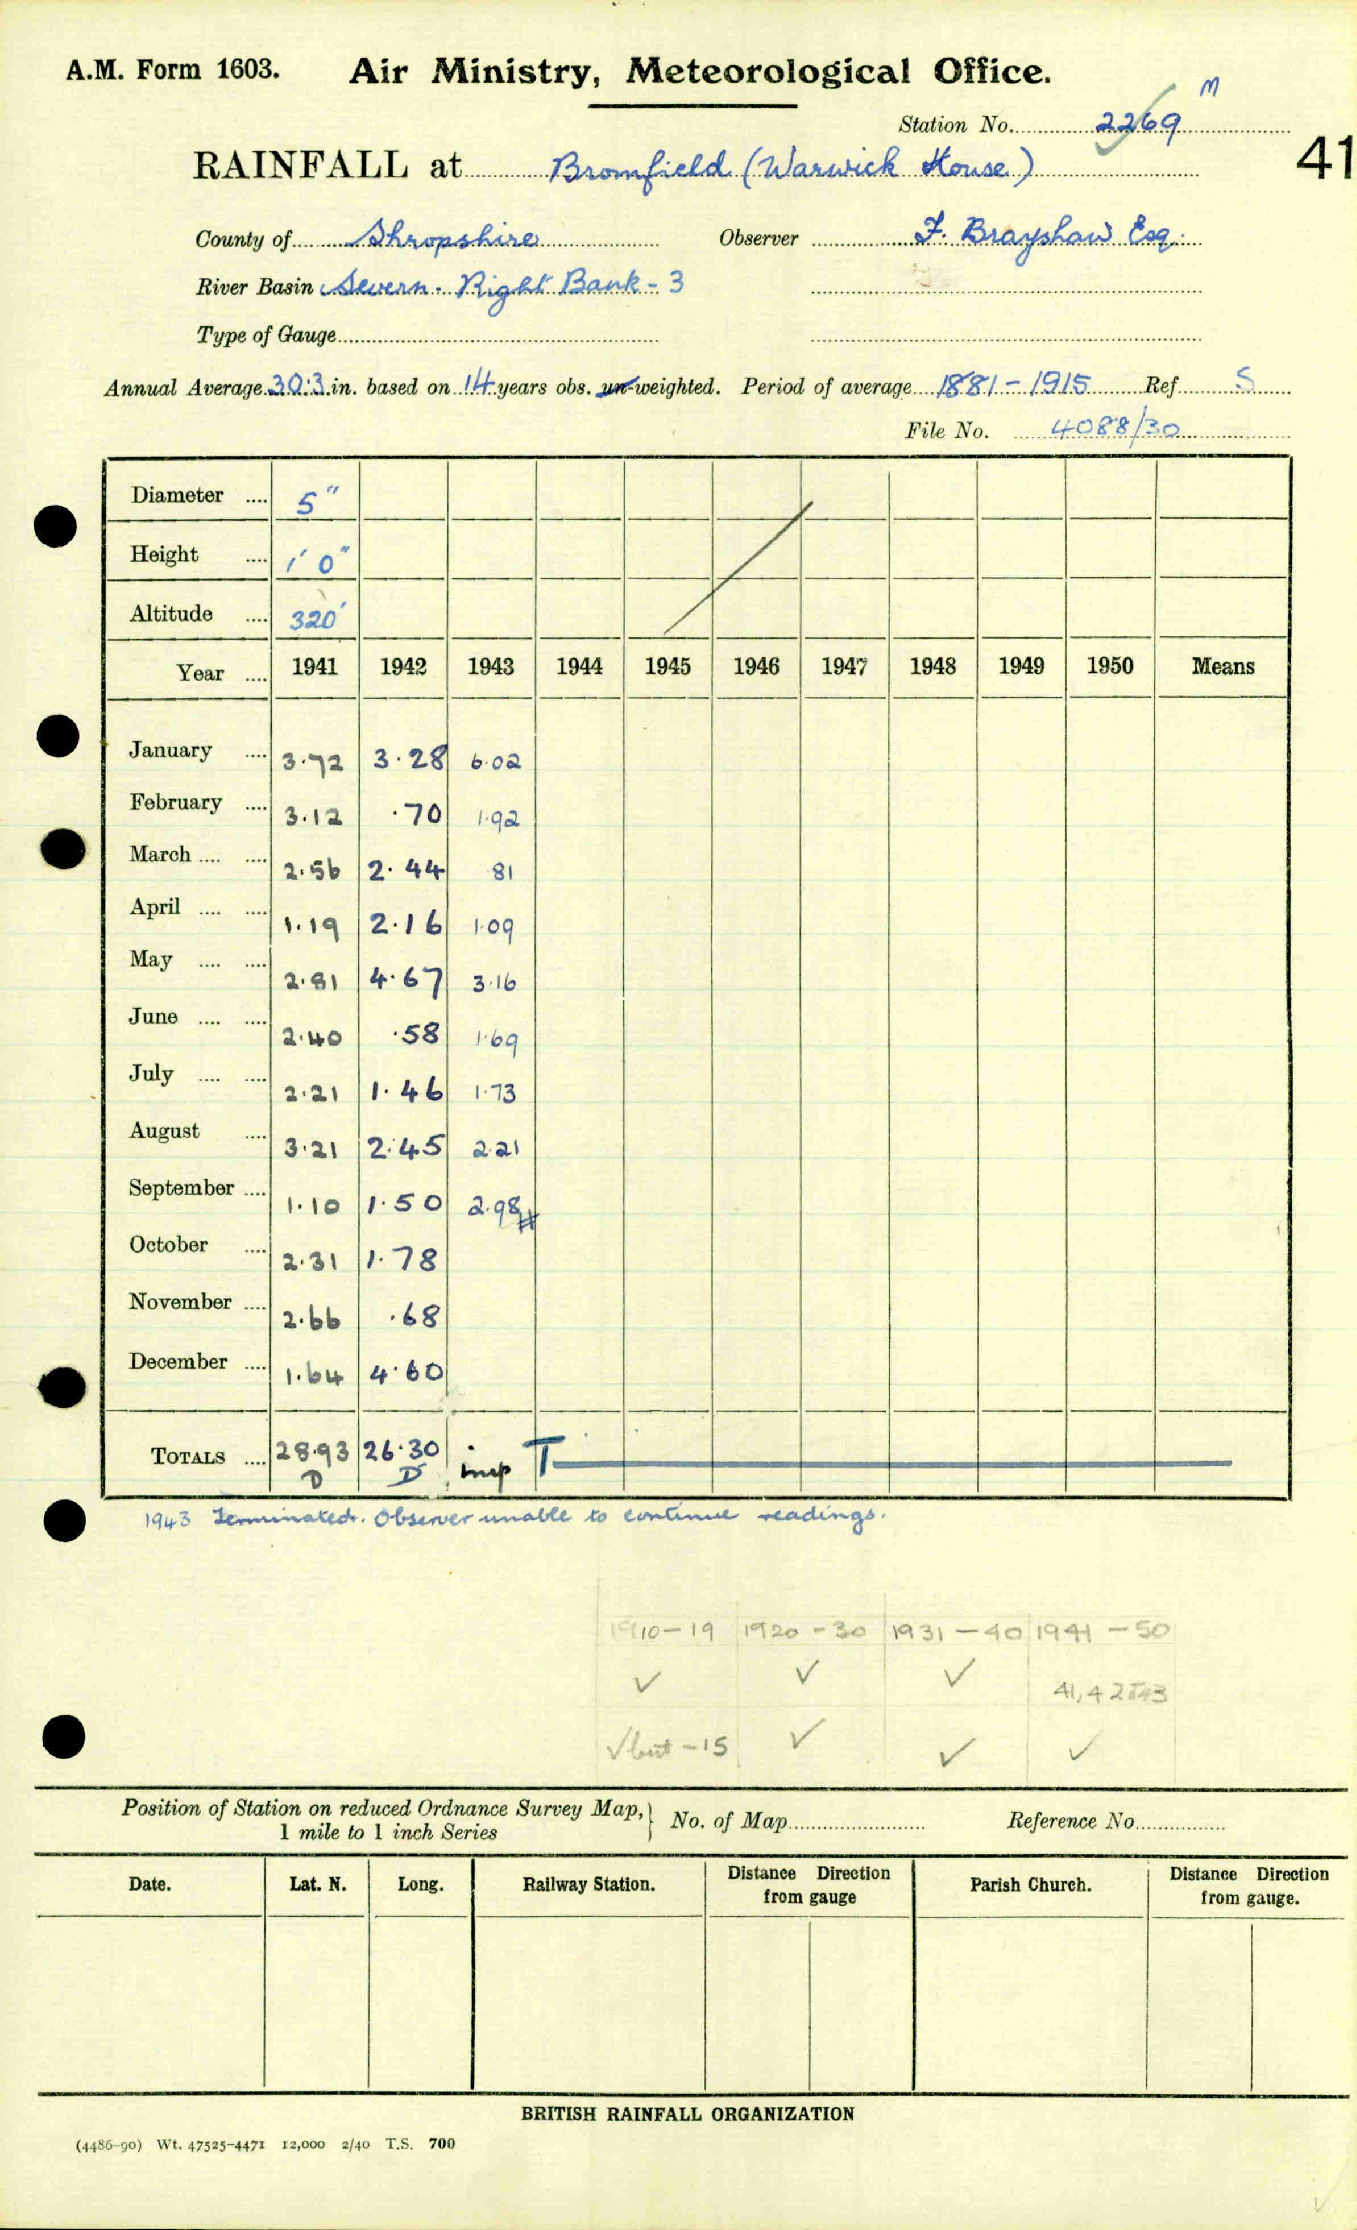 A.M. Form 1603. Air Ministry, Meteorological Office.
M
Station No. 2269
RAINFALL at Bromfield (Warwick House)
41
County of Shropshire Observer F. Brayshaw Esq.
River Basin Severn - Right Bank - 3
Type of Gauge
Annual Average 30.3 in. based on 14 years obs. un-weighted. Period of average 1881-1915 Ref. S
File No. 4088/30
Diameter .... 5"
Height .... 1' 0"
Altitude .... 320'
Year .... 1941 1942 1943 1944 1945 1946 1947 1948 1949 1950 Means
January .... 3.72 3.28 6.02
February .... 3.12 .70 1.92
March .... .... 2.56 2.44 81
April .... .... 1.19 2.16 1.09
May .... .... 2.81 4.67 3.16
June .... .... 2.40 .58 1.69
July .... .... 2.21 1.46 1.73
August .... 3.21 2.45 2.21
September .... 1.10 1.50 2.98 #
October .... 2.31 1.78
November .... 2.66 .68
December .... 1.64 4.60
TOTALS .... 28.93 26.30 inp T
D D
1943 Terminated. Observer unable to continue readings.
1910-19 1920-30 1931-40 1941-50
✓ ✓ ✓ 41, 42 & 43
✓ but -15 ✓ ✓ ✓
Position of Station on reduced Ordnance Survey Map, } No. of Map Reference No.
1 mile to 1 inch Series
Date. Lat. N. Long. Railway Station. Distance Direction from gauge Parish Church. Distance Direction from gauge.
BRITISH RAINFALL ORGANIZATION
(4486-90) Wt. 47525-4471 12,000 2/40 T.S. 700